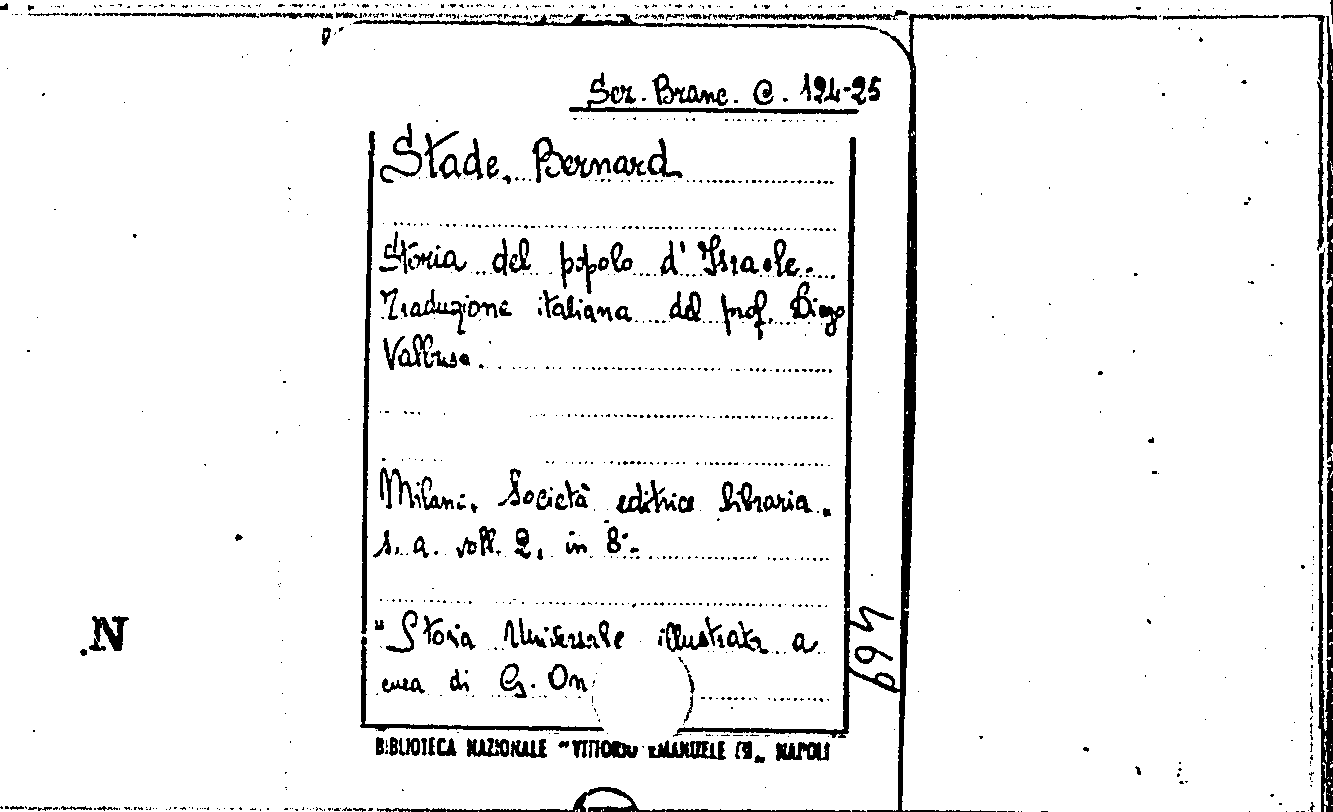 Scr. Branc. C. 124-25
Stade, Bernard
Storia del popolo d'Israele.
Traduzione italiana del prof. Diego
Valbusa.
Milano, Società editrice libraria.
s. a. voll. 2, in 8°.
"Storia Universale illustrata a
cura di G. On
694
BIBLIOTECA NAZIONALE "VITTORIO EMANUELE III„ NAPOLI
N.